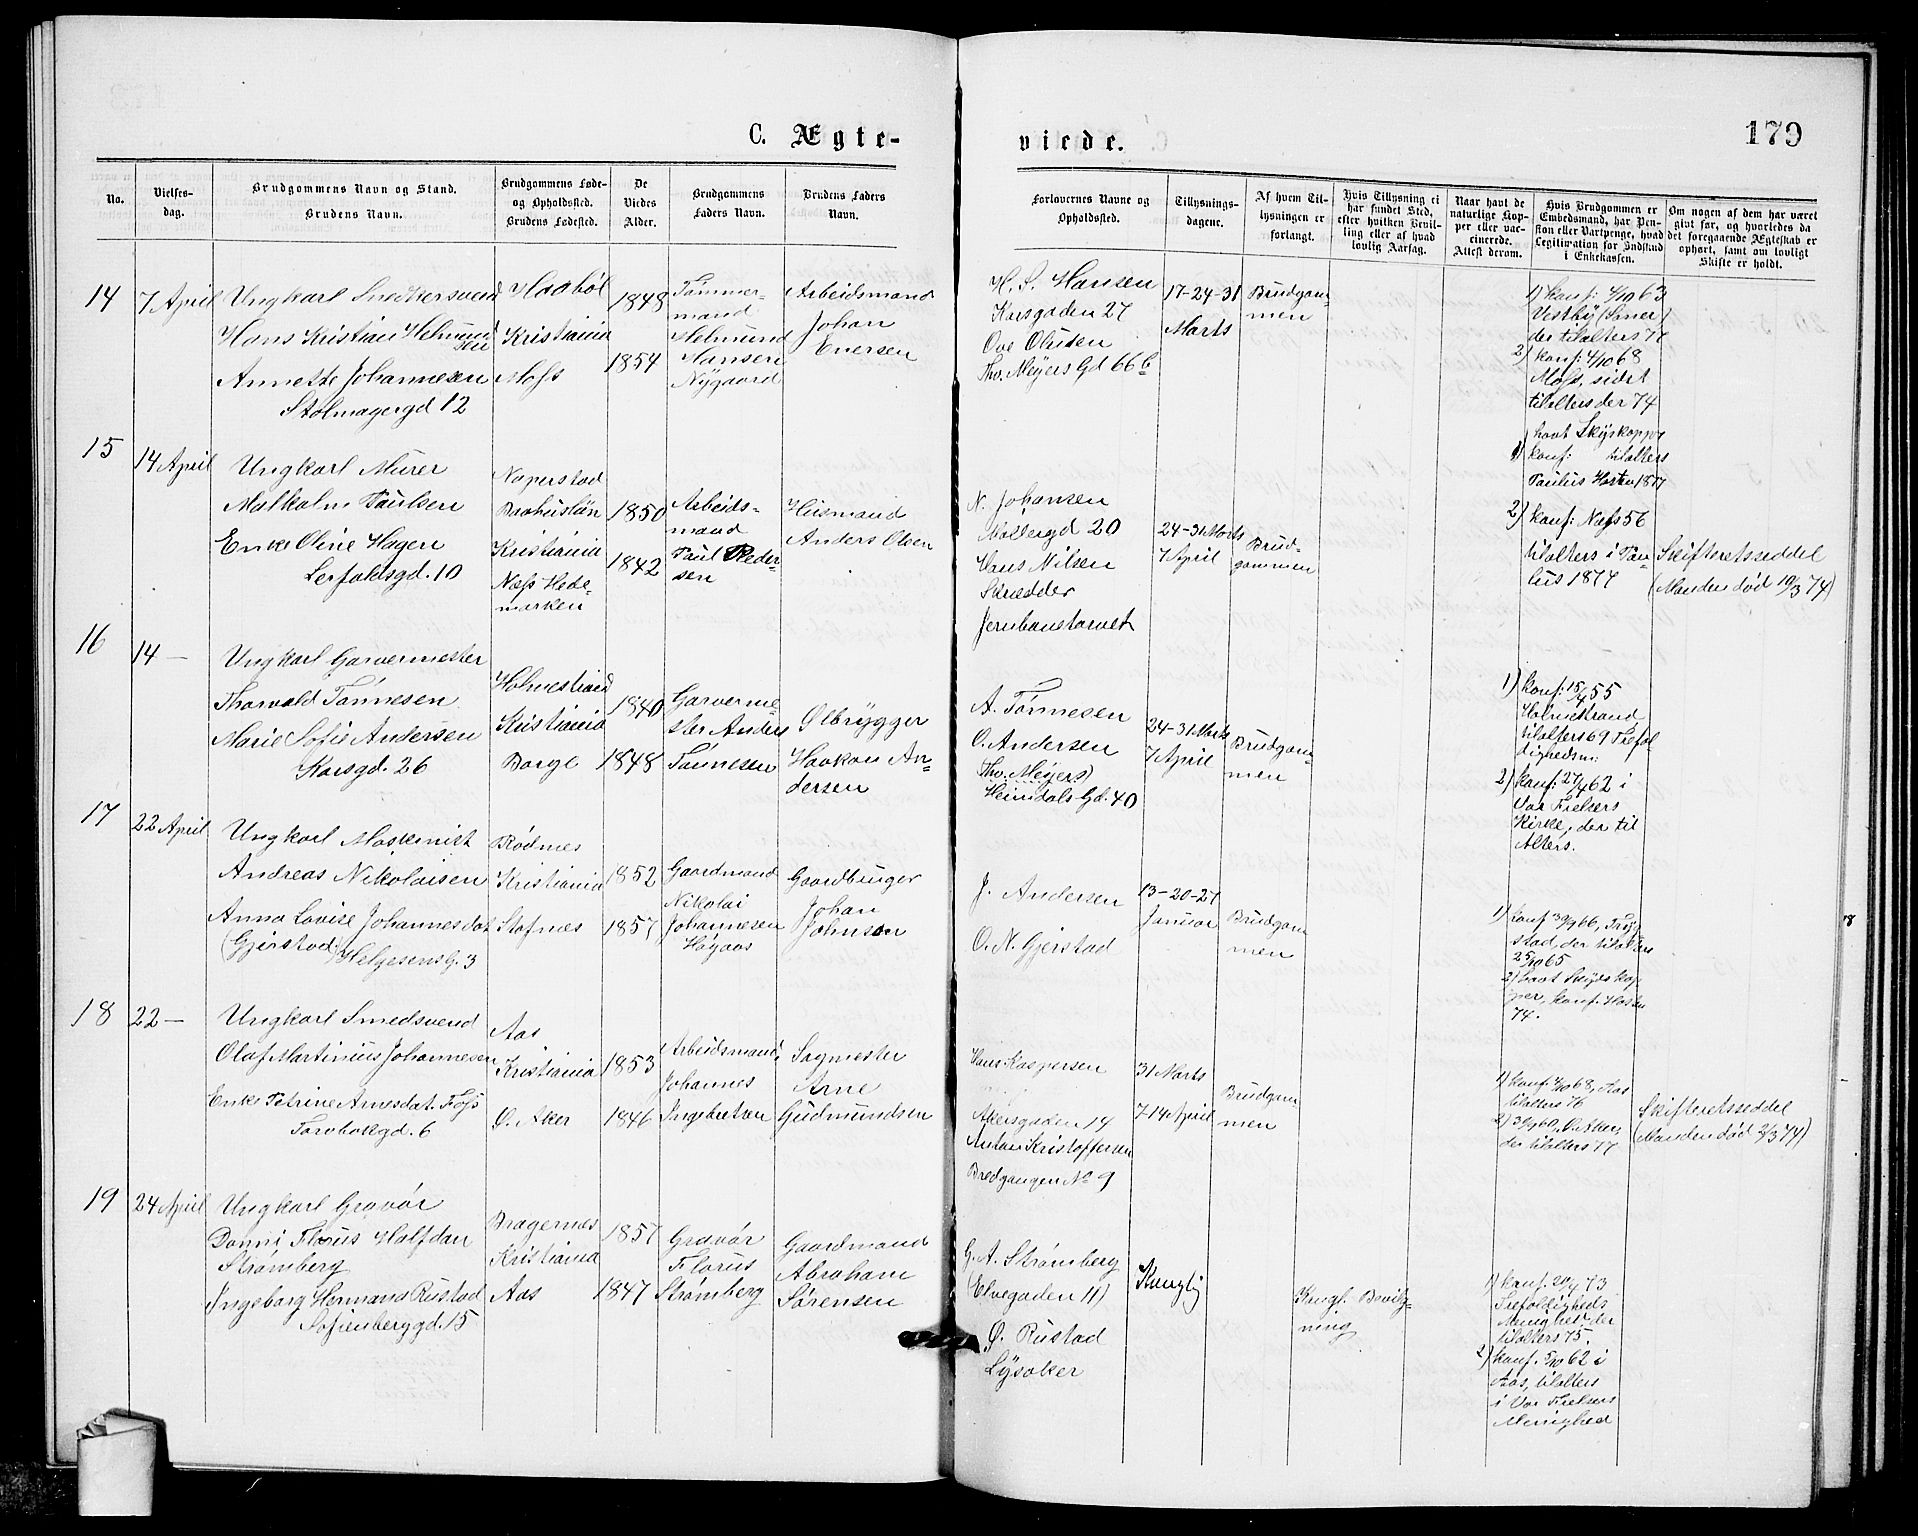 C. Ægte-
viede.
179
No.
Vielses-
dag.
Brudgommens Navn og Stand.
Brudens Navn.
Brudgommens Føde-
og Opholdssted.
Brudens Fødested.
De
Viedes
Alder.
Brudgommens
Faders Navn.
Brudens Faders
Navn.
Forlovernes Navne og
Opholdssted.
Tillysnings-
dagene.
Af hvem Til-
lysningen er
forlangt.
Hvis Tillysning ei
har fundet Sted,
efter hvilken Bevil-
ling eller af hvad
lovlig Aarsag.
Naar havt de
naturlige Kop-
per eller vac-
cinerede.
Attest derom.
Hvis Brudgommen er
Embedsmand, har Pen-
sion eller Vartpenge, hvad
Legitimation for Indskud
i Enkekassen.
Om nogen af dem har været
gift før, og hvorledes da
det foregaaende Ægteskab er
ophørt, samt om lovligt
Skifte er holdt.
14
7 April
Ungkarl Snedkersvend
Hans Kristian Helmund-
sen
Annette Johannesen
Stolmagergd 12
Haabøl
Kristiania
Moss
1848
1854
Tømmer-
mand
Helmund
Hansen
Nygaard
Arbeidsmand
Johan
Enersen
H. S. Hansen
Korsgaden 27
Ove Olusen
Thv. Meyers Gd 66 b
17-24-31
Marts
Brudgom-
men
1) konf: 4/10 63
Vestby (Soner)
der tilalters 77
2) konf: 4/10 68
Moss, sidst
tilalters der 74
15
14 April
Ungkarl Murer
Malkolm Paulsen
Enke Oline Hagen
Lerfoldsgd. 10
Naverstad
Baahuslän
Kristiania
Næss Hede-
marken
1850
1842
Arbeids-
mand
Paul Peder-
sen
Husmand
Anders Olsen
N. Johansen
Møllergd 20
Hans Nilsen
Skrædder
Jernbanetorvet
24-31 Marts
7 April
Brud-
gommen
havt Skyskopper
1) konf: tilalters
Paulus Høsten 1877
2) konf: Næss 56
tilalters i Pau-
lus 1877
Skifteretsseddel
(Manden død 19/3 74)
16
14 —
Ungkarl Garvermester
Thorvald Tønnesen
Marie Sofie Andersen
Korsgd. 26
Holmestrand
Kristiania
Borge
1840
1848
Garverme-
ster Anders
Tønnesen
Ølbrygger
Haakon An-
dersen
A. Tønnesen
O. Andersen
Thv. Meyers)
Heimdals Gd. 40
24-31 Marts
7 April
Brudgom-
men
1) konf: 15/4 55
Holmestrand
tilalters 69 Trefol-
dighedsm:
2) konf: 27/4 62 i
Vor Frelsers
Kirke, der til
Alters.
17
22 April
Ungkarl Maskinist
Andreas Nikolaisen
Anna Lovise Johannesdat
(Gjerstad) Helgesens G. 3
Rødnes
Kristiania
Stafnes
1852
1857
Gaardmand
Nikolai
Johannesen
Høgaas
Gaardbruger
Johan
Johnsen
J. Andersen
O. N. Gjerstad
13-20-27
Januar
Brudgom-
men
1) konf 30/9 66, Tryg-
stad, der tilalters
25/10 65
2) havt Skyskop-
per, konf. Høsten
74.
18
22 —
Ungkarl Smedsvend
Olaf Martinius Johannesen
Enke Petrine Arnesdat. Foss
Torvbakgd. 6
Aas
Kristiania
Ø. Aker
1853
1846
Arbeidsmand
Johannes
Ingebretsen
Sagmester
Arne
Gudmundsen
Hans Kaspersen
Akersgaden 14
Anton Kristoffersen
Bredgangen No 9
31 Marts
7-14 April
Brudgom-
men
1) konf: 4/10 68, Aas
tilalters 76
2) 30/9 60, V. Aker,
der tilalters 77
Skifteretsseddel
(Manden død 2/3 74)
19
24 April
Ungkarl Gravør
Danni Florus Halfdan
Strømberg
Ingeborg Hermana Rustad
Sofienberggd. 15
Bragernes
Kristiania
Aas
1857
1847
Gravør
Florus
Strømberg
Gaardmand
Abraham
Sørensen
G. A. Strømberg
(Elvegaden 11)
Ø. Rustad
Lysaker
Kongl. Bevilg-
ning
1) konf. 20/4 73
Trefoldigheds
Menighed, der
tilalters 75.
2) konf. 5/10 62 i
Aas, tilalters
i Vor Frelsers
Menighed